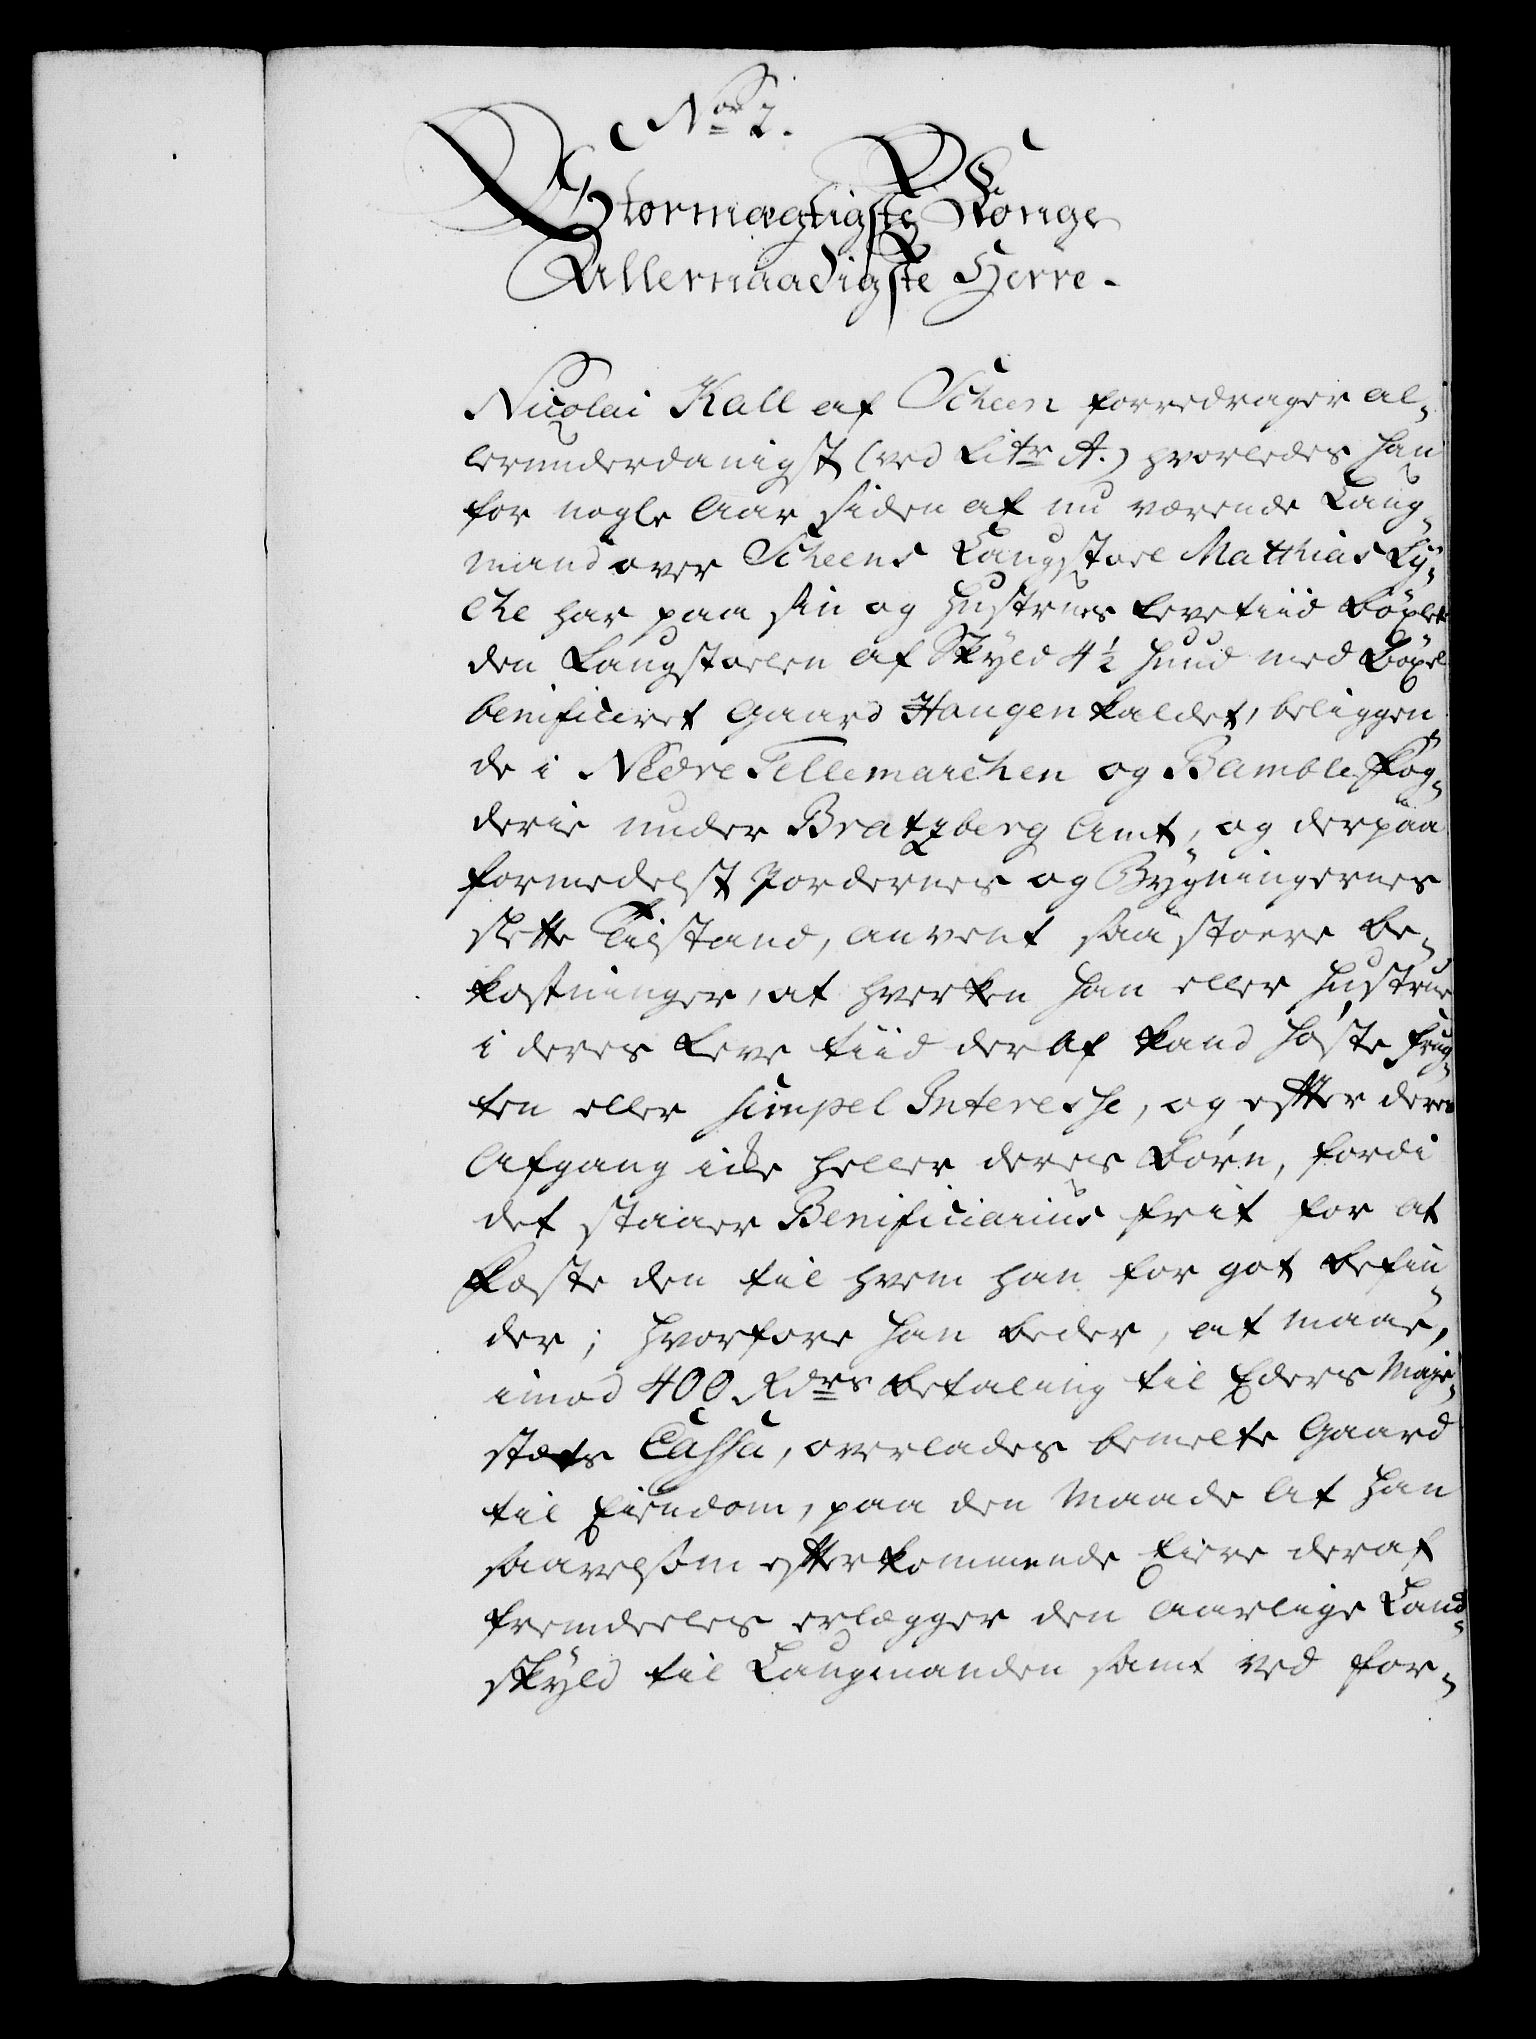 No 2.
Stormægtigste Konge
Allernaadigste Herre.
Nicolai Kall af Scheen forredrager al-
lerunderdanigst (ved Litr A.) hvorledes han
for nogle Aar siden af nu værende Laug-
mand over Scheens Laugstoel Matthias Ly-
che har paa sin og Hustrues Levetiid böxlet
den Laugstoelen af Skyld 4½ Huud med Böxel
benificeret Gaard Haugen kaldet, beliggen-
de i Nedre Tellemarchen og Bamble Fog-
derie under Bratzberg Amt, og derpaa
formedelst Jordernes og Bygningernes
slette Tilstand, anvent saa stoere Be-
kostninger, at hverken han eller Hustrue
i deres Leve Tiid deraf kand høste Frug-
ten eller simpel Interesse, og efter deres
Afgang icke heller deres Børn, fordi
det staaer Benificiarius frit for at
Fæste den til hvem han for got befin-
der; hvorfore han beder, at maae,
imod 400 Rdrs Betaling til Eders Maje-
stæts Cassa, overlades bemelte Gaard
til Eiendom, paa den Maade at han
saavelsom efterkommende Eiere deraf
fremdeeles erlægger den aarlige Land-
skyld til Laugmanden samt ved for-